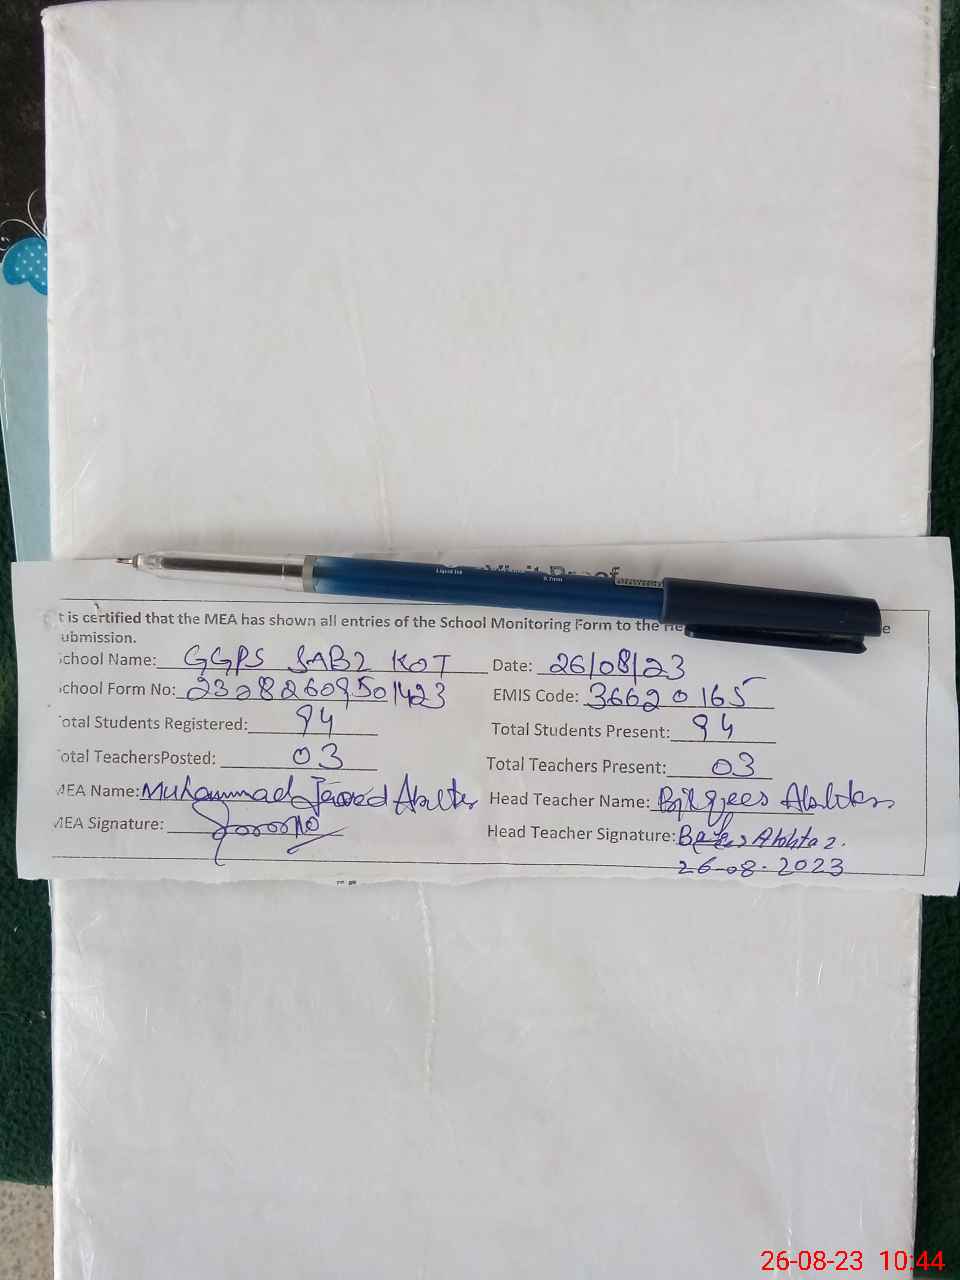 Visit Proof
Liquid Ink 0.7mm
t is certified that the MEA has shown all entries of the School Monitoring Form to the He e
ubmission.
School Name: GGPS SABZ KOT Date: 26/08/23
School Form No: 23282609501423 EMIS Code: 36620165
Total Students Registered: 94 Total Students Present: 94
Total TeachersPosted: 03 Total Teachers Present: 03
MEA Name: Muhammad Javed Akhter Head Teacher Name: Bilqees Akhtar
MEA Signature: Head Teacher Signature:
26-08-2023
26-08-23 10:44